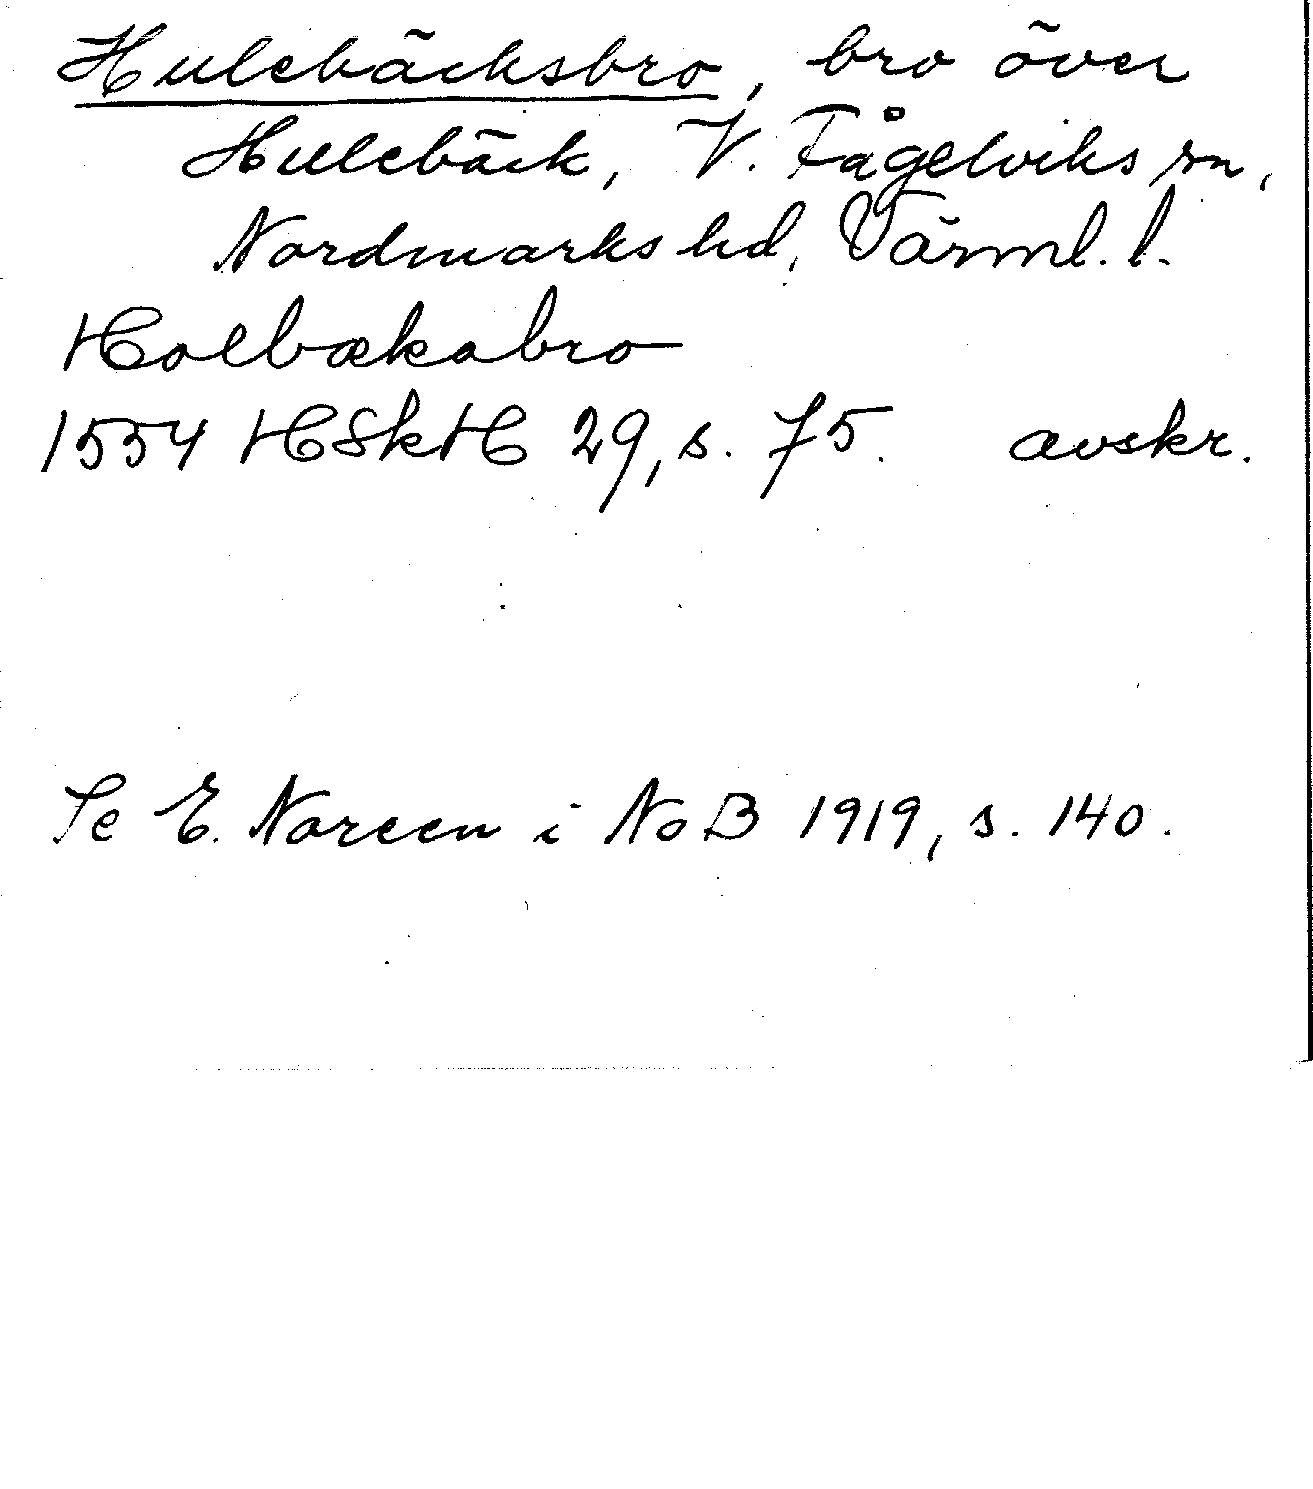 Hulebäcksbro, bro över
Hulebäck, V. Fågelviks sn,
Nordmarks hd, Värml. l.
Holbækabro
1554 HSkH 29, s. 75. avskr.
Se E. Noreen i NoB 1919, s. 140.